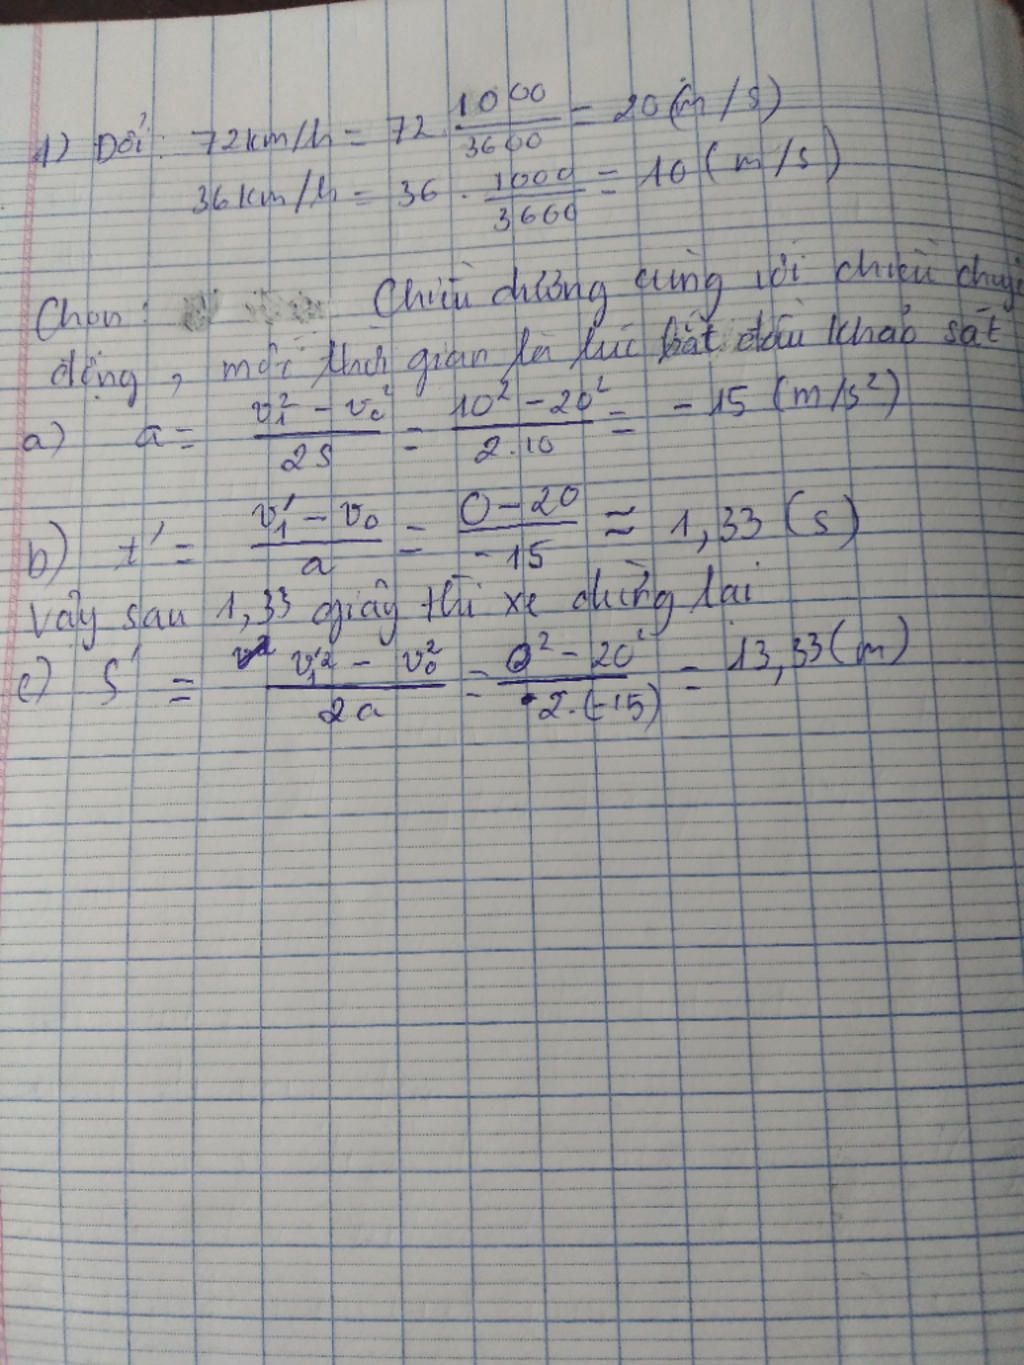 1) Đổi: 72km/h = 72 . 1000/3600 = 20 (m/s)
36km/h = 36 . 1000/3600 = 10 (m/s)
Chọn: Chiều dương cùng với chiều chuyể
động, mốc thời gian là lúc bắt đầu khảo sát
a) a = (v₁² - v₀²)/2S = (10² - 20²)/2.10 = -15 (m/s²)
b) t' = (v₁' - v₀)/a = (0 - 20)/-15 ≈ 1,33 (s)
Vậy sau 1,33 giây thì xe dừng lại
c) S' = (v₁'² - v₀²)/2a = (0² - 20²)/2.(-15) = 13,33 (m)